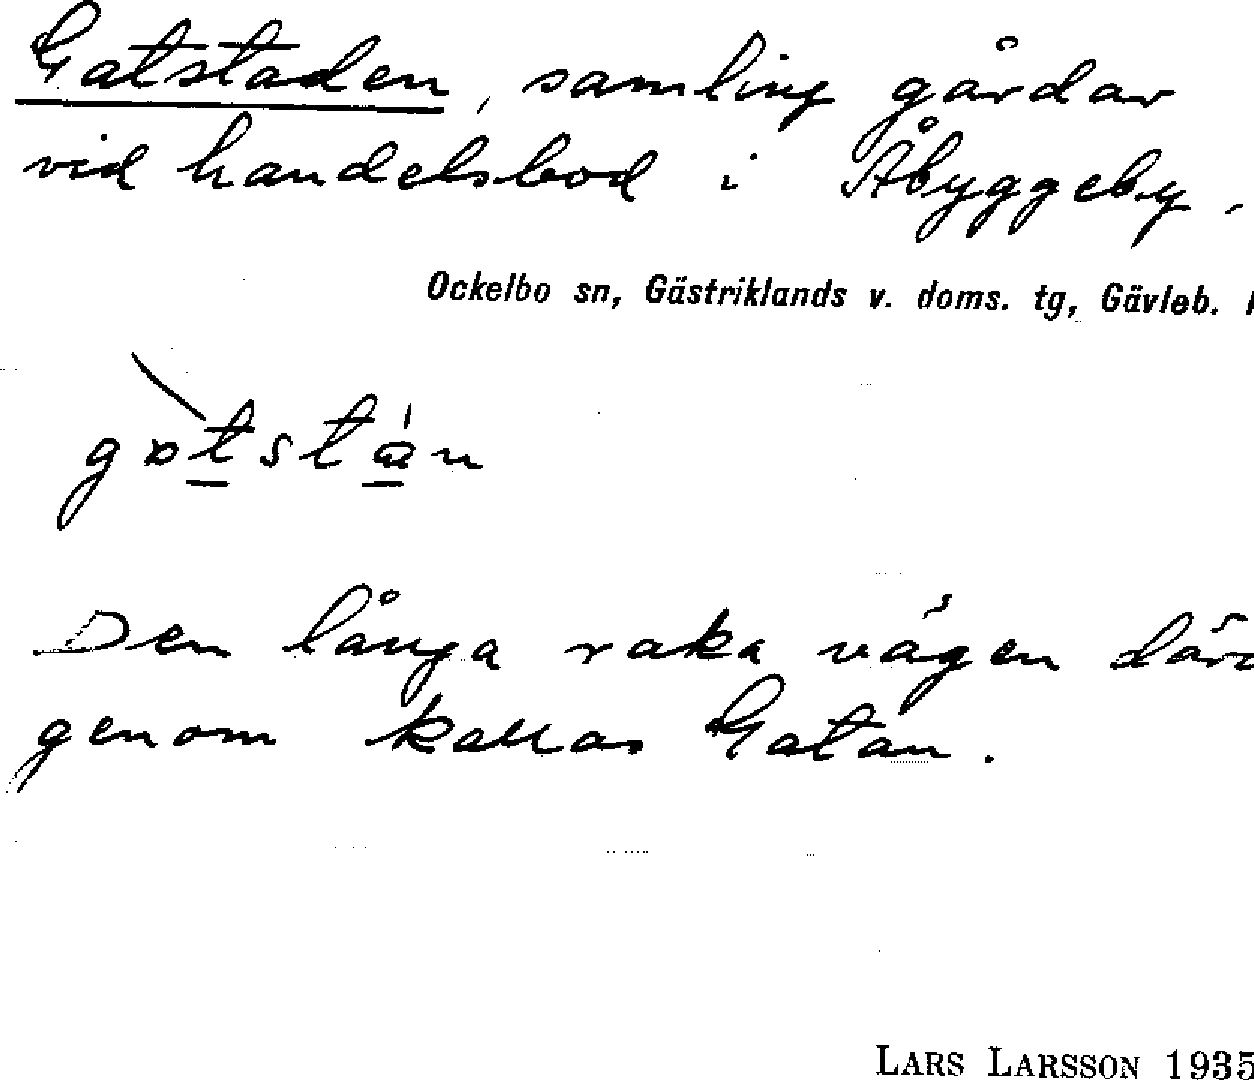 Gatstaden, samling gårdar
vid handelsbod i Åbyggeby.
Ockelbo sn, Gästriklands v. doms. tg, Gävleb.
Den långa raka vägen där
genom kallas Gatan.
LARS LARSSON 1935